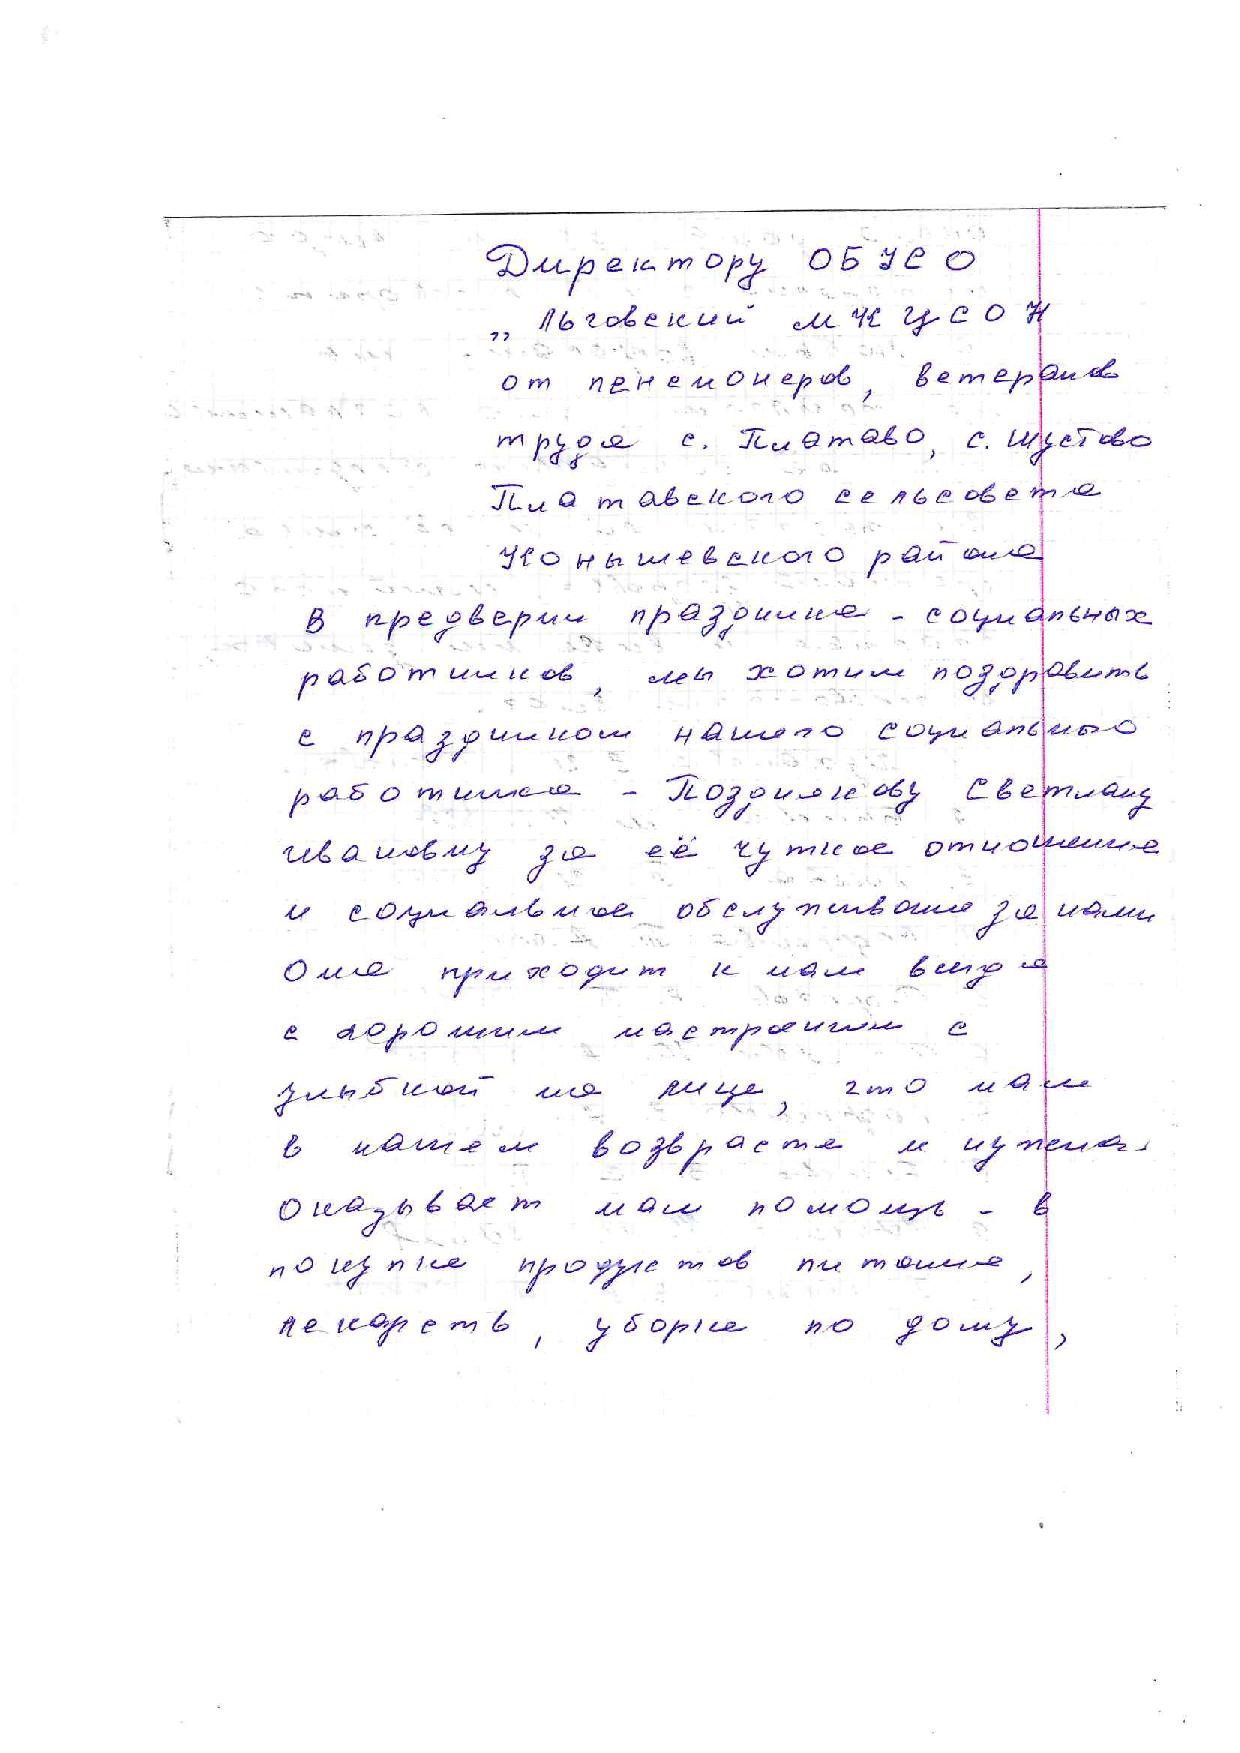 Директору ОБУСО
„Льговский МКЦСОН
от пенсионеров, ветеранов
труда с. Платаво, с. Шустово
Платавского сельсовета
Конышевского района
В предверии праздника - социальных
работников, мы хотим поздравить
с праздником нашего социального
работника - Позднякову Светлану
Ивановну за её чуткое отношение
и социальное обслуживание за нами
Она приходит к нам всегда
с хорошим настроением с
улыбкой на лице, что нам
в нашем возврасте и нужно.
Оказывает нам помощь - в
покупке продуктов питания,
лекарств, уборке по дому,